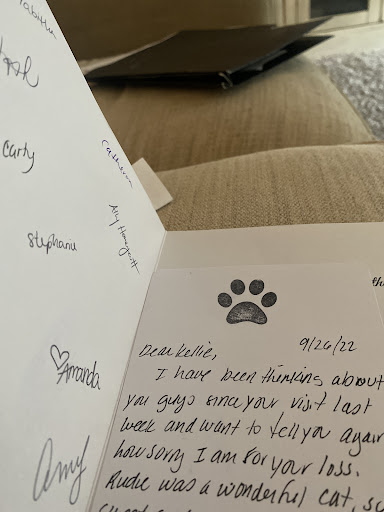 Tabitha
Carty
Catherine
Stephanie
Amanda
Amy
th
Dear Kellie,
9/26/22
I have been thinking about
you guys since your visit last
week and want to tell you again
how sorry I am for your loss.
Rudie was a wonderful cat, so